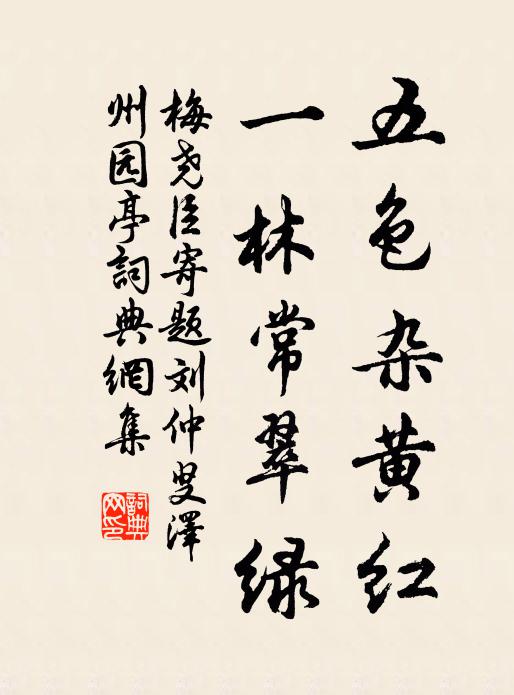 五色杂黄红
一林常翠绿
梅尧臣寄题刘仲叟泽
州园亭詞典網集
詞典
网印